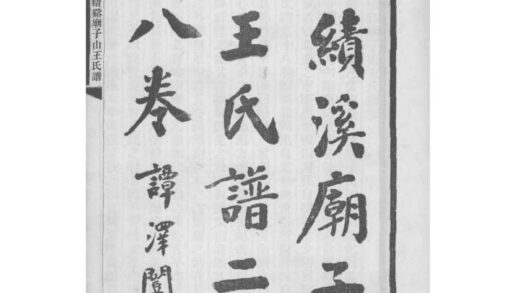 績溪廟子
王氏譜二
八卷 譚澤闓
績谿廟子山王氏譜